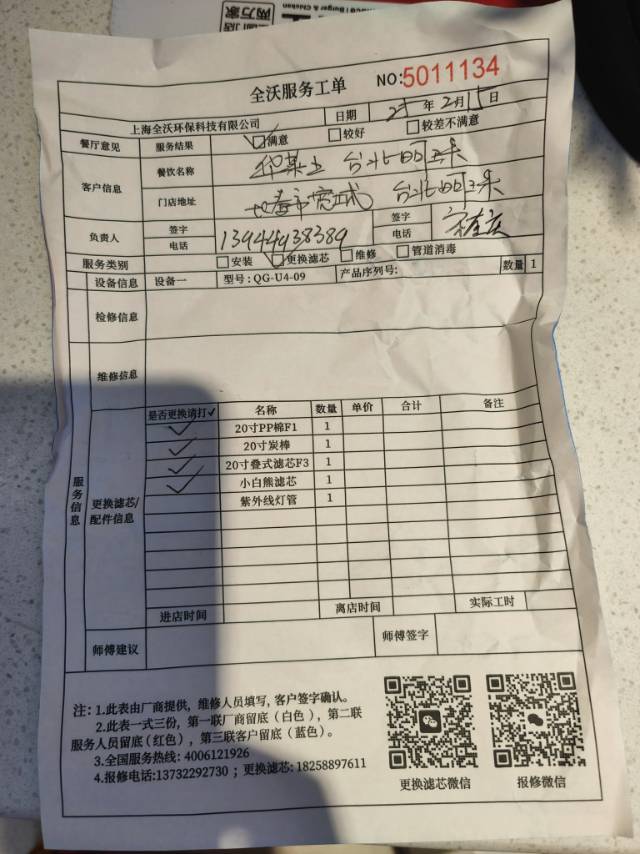 两万家
Burger & Chicken
全沃服务工单 NO:5011134
上海全沃环保科技有限公司 日期 25 年 2 月 15 日
餐厅意见 服务结果 满意 较好 较差不满意
客户信息 餐饮名称 台北
门店地址 台北
负责人 签字 签字
电话 13944938389 电话
服务类别 安装 更换滤芯 维修 管道消毒
设备信息 设备一 型号:QG-U4-09 产品序列号: 数量 1
检修信息
维修信息
服务信息 更换滤芯/配件信息
是否更换请打✓ 名称 数量 单价 合计 备注
✓ 20寸PP棉F1 1
✓ 20寸炭棒 1
✓ 20寸叠式滤芯F3 1
✓ 小白熊滤芯 1
紫外线灯管 1
进店时间 离店时间 实际工时
师傅建议 师傅签字
注:1.此表由厂商提供,维修人员填写,客户签字确认。
2.此表一式三份,第一联厂商留底(白色),第二联
服务人员留底(红色),第三联客户留底(蓝色)。
3.全国服务热线:4006121926
4.报修电话:13732292730 ; 更换滤芯:18258897611
更换滤芯微信 报修微信